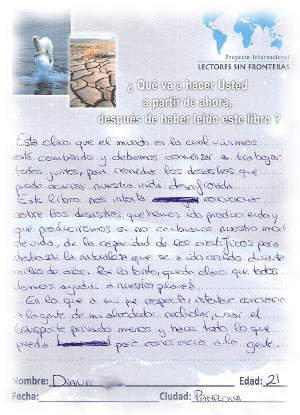 Proyecto Internacional
LECTORES SIN FRONTERAS
¿ Qué va a hacer Usted
a partir de ahora,
después de haber leído este libro ?
Esta claro que el mundo en la cual vivimos
está cambiando y debemos comenzar a trabajar
todos juntos, para remediar los desastres que
puede acarrear nuestra vida
Este libro nos intenta concienciar
sobre los desastres que hemos ido produciendo y
que produciremos si no cambiamos nuestro modo
de vida, de la capacidad de los científicos para
destrozar la naturaleza que se a ido creando durante
miles de años. Por lo tanto queda claro que todos
demos ayudar a nuestro planeta.
En lo que a mi me respecta, intentar concienciar
a la gente de mi alrededor, reciclar, usar el
transporte privado menos y hacer todo lo que
pueda para concienciar a la gente.
Nombre: Edad: 21
Fecha: Ciudad: PAMPLONA